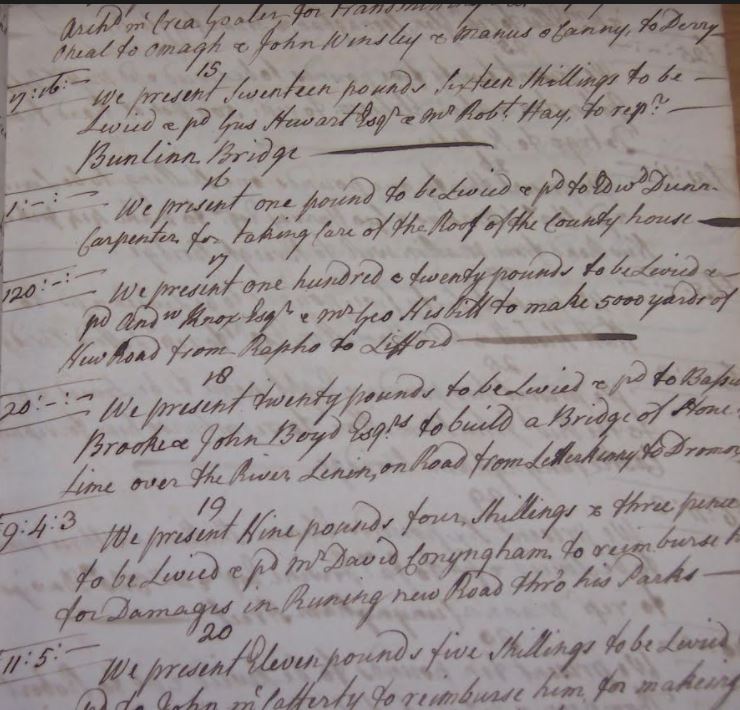 Archd mc Crea Goaler for Transmitting
Oneal to Omagh & John Winsley & Manus o Canny, to Derry
15
17:16:– We present Seventeen pounds Sixteen Shillings to be
Levied & pd Gus Stewart Esqr & Mr Robt. Hay, to repr
Bunlinn Bridge
16
1:–:– We present one pound to be Levied & pd to Edwd Dunn
Carpenter for taking Care of the Roof of the County house
17
120:–:– We present one hundred & twenty pounds to be Levied &
pd Andw Knox Esqr & Mr Geo Nisbitt to make 5000 yards of
New Road from Rapho to Lifford
18
20:–:– We present twenty pounds to be Levied & pd to
Brooke & John Boyd Esqrs to build a Bridge of Stone
Lime over the River Lenin, on Road from Letterkenny to
19
9:4:3 We present Nine pounds four Shillings & three pence
to be Levied & pd Mr David Conyngham to reimburse
for Damages in Runing new Road thro his Parks
20
11:5:– We present Eleven pounds five Shillings to be Levied
pd to John mc Cafferty to reimburse him for makeing